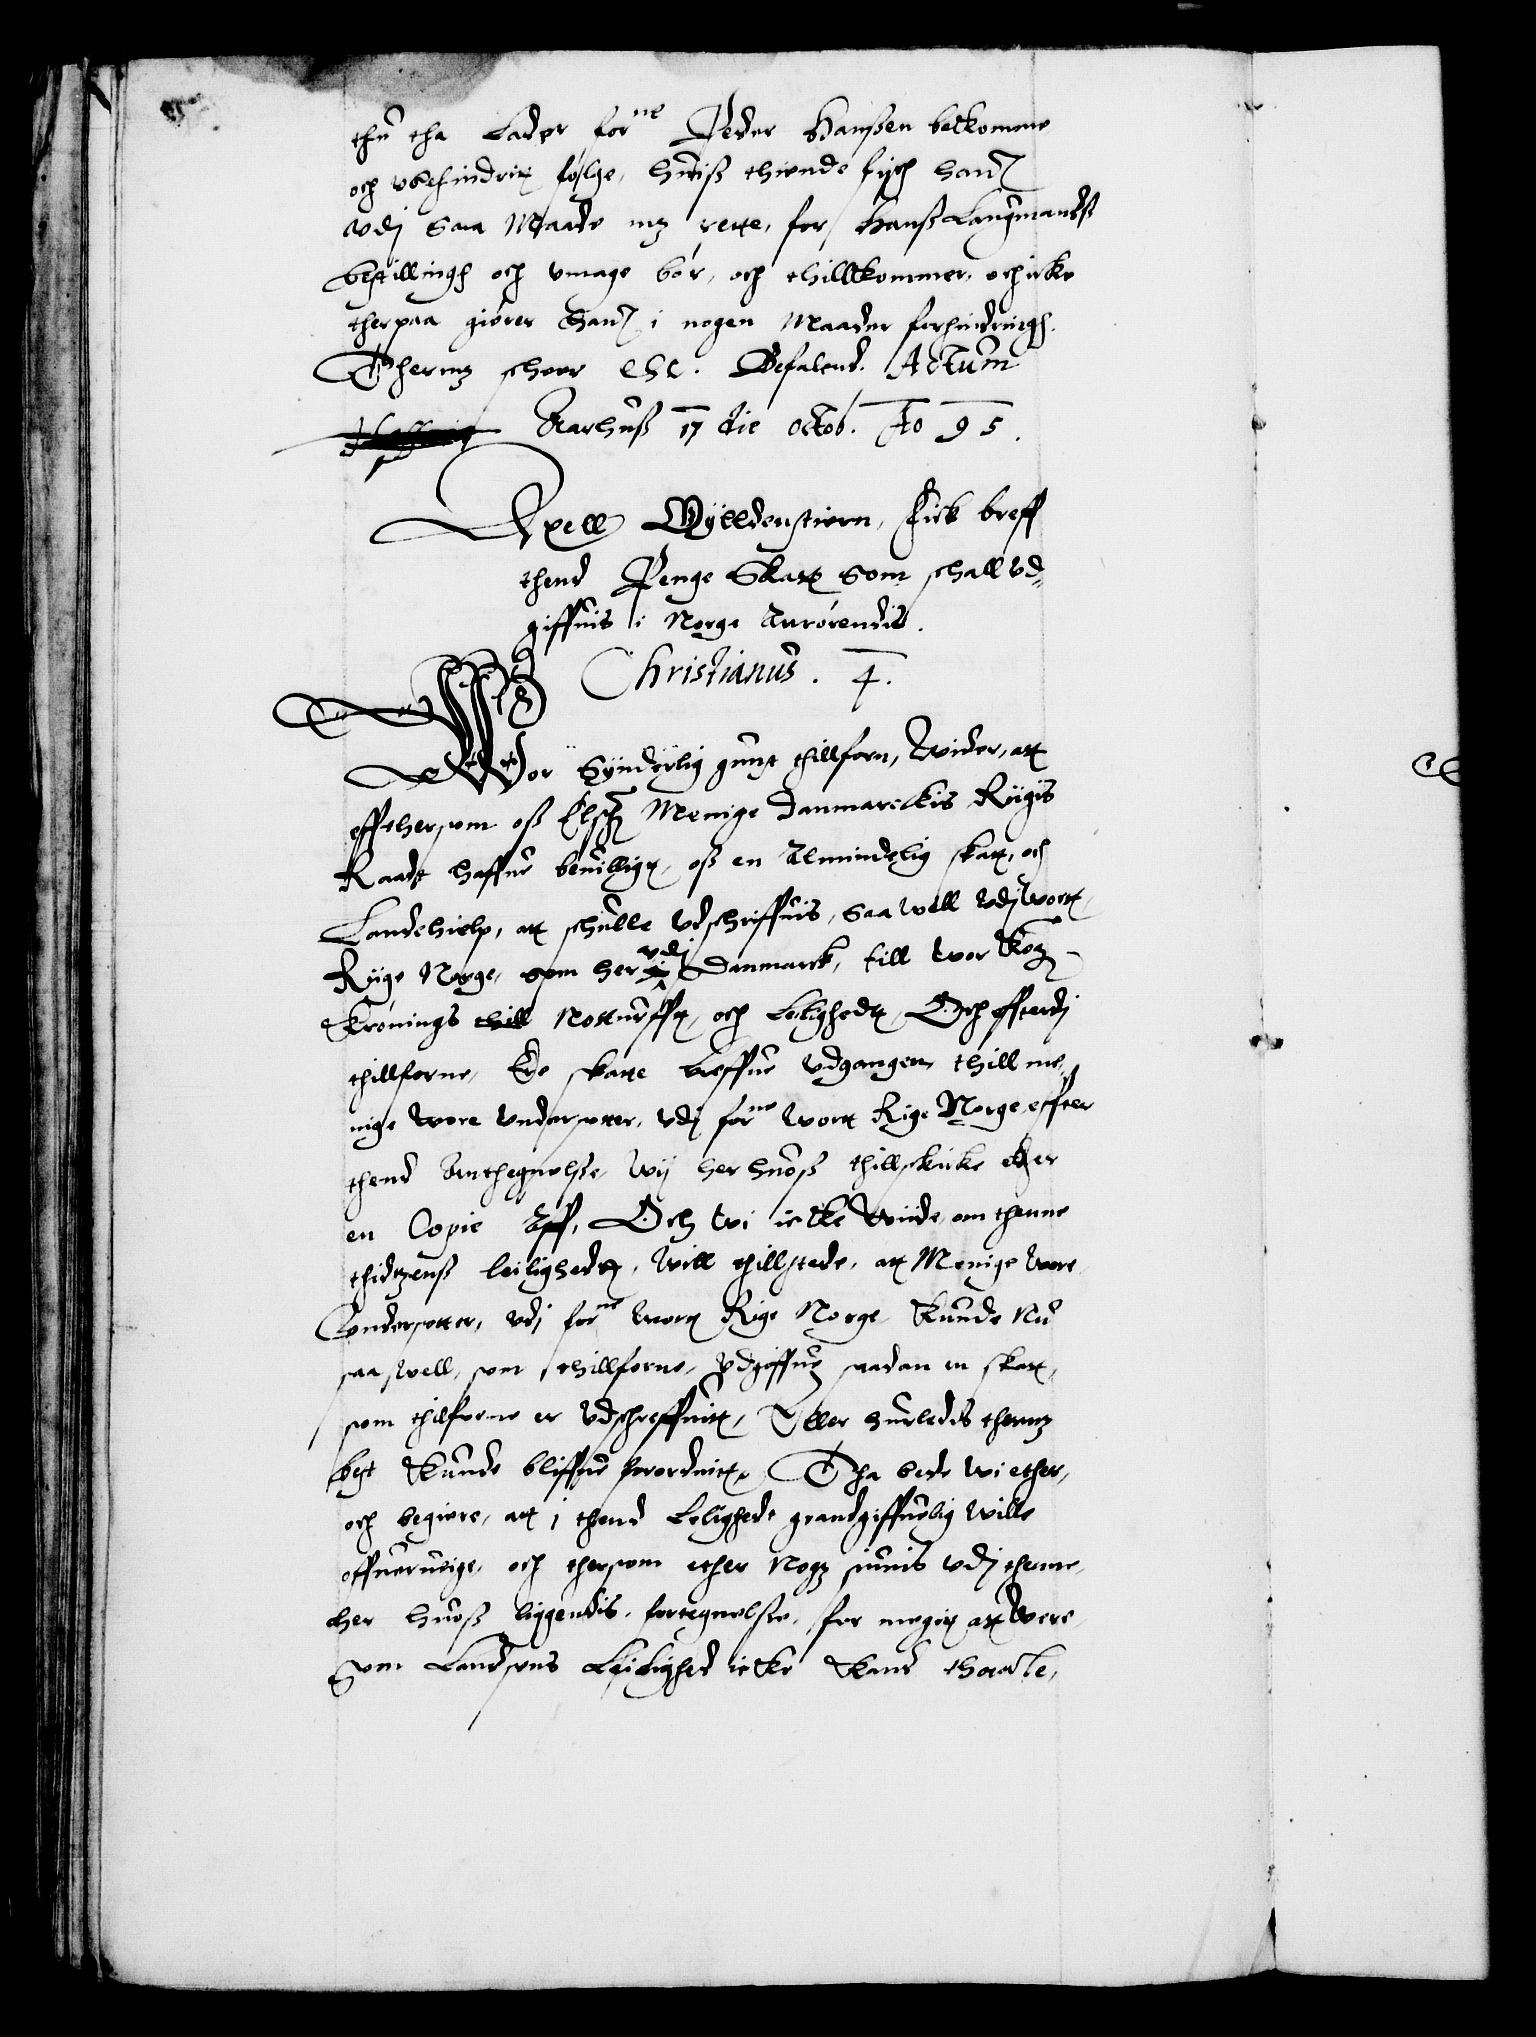 thu tha Lader for^ne Peder Hanßen bekomme
och vbehindrit følge, huis thiende fisch hand
vdj saa Maade mz rette, for Hanß Laugmandß
bestillingh och vmage bør, och thillkommer, och icke
therpaa giører hand i nogen Maader forhindringh.
Thermz scheer etc. Befalend. Actum
Aarhuß 17 die Octob. Ao 95.
Axell Gylldenstiern, Fick breff
thend Penge Skatt som schall vd-
giffuis i Norge Anrørendis.
Christianus. 4.
Wor synderlig gunst thillforn, Wider, att
effthersom oß Elsch Menige Danmarckis Riigis
Raadt haffue beuilligt, oß en Almindelig skatt, och
Landehielp, att schulle vdschriffuis, saa well vdj wortt
Riige Norge, som her vdj Danmarck, till wor Kog
Krønings till Notturfft, och Leilighedt, Och effterdj
thillforne, Er skatte breffue vdgangen, thill me-
nige wore vndersotter, vdj for^ne wort Rige Norge, effter
thend Anthegnelsse, wij her huoß thillskicke ether
en Copie Aff, Och wi icke wiide, om thenne
thidtzenß leilighedt, will thillstede, att Menige wore
vndersotter, vdj for^ne wort Rige Norge kunde nu
saa well, som thillforne, vdgiffue saadan en skatt,
som thilforne er vdschreffuit, Eller huorledis thermz
best kunde bliffue forordnit, Tha bede wi ether,
och begiere, att i thend Leilighedt grandgiffuelig wille
offuerueige, och thersom ether Nogz siunis vdj thenne
her huoß liggendis, fortegnelsse, for megit att were
som Landsens Leilighed icke kand thaale,